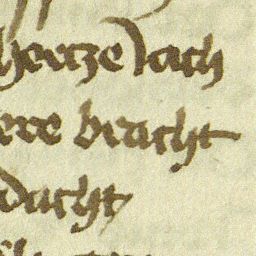 hertze lach
ere bracht
dacht